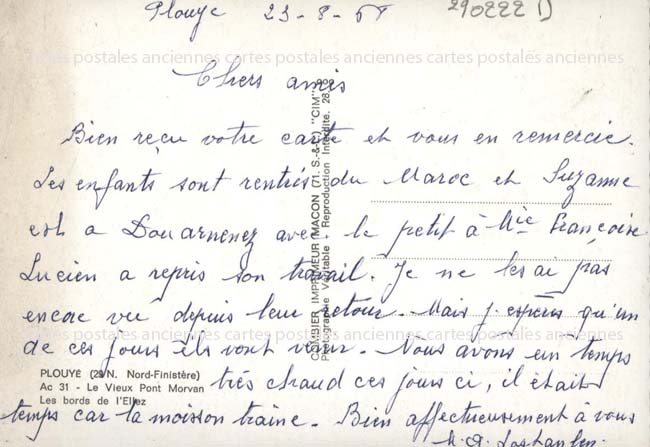 Plouye 23-8-68
290222 D
cartes postales anciennes cartes postales anciennes cartes postales anciennes
Chers amis
Bien reçu votre carte et vous en remercie.
Les enfants sont rentrés du Maroc et Suzanne
est a Douarnenez avec le petit à Mie Françoise
Lucien a repris son travail. Je ne les ai pas
encore vu depuis leur retour. Mais j'espère qu'un
de ces jours ils vont venir. Nous avons eu un temps
très chaud ces jours ci, il était
temps car la moisson traine. Bien affectueusement à vous
COMBIER IMPRIMEUR MACON (71. S.-&-L.) "CIM"
Photographie Véritable - Reproduction Interdite.
PLOUYÉ (29 N. Nord-Finistère)
Ac 31 - Le Vieux Pont Morvan
Les bords de l'Ellez
cartes postales anciennes cartes postales anciennes cartes postales anciennes